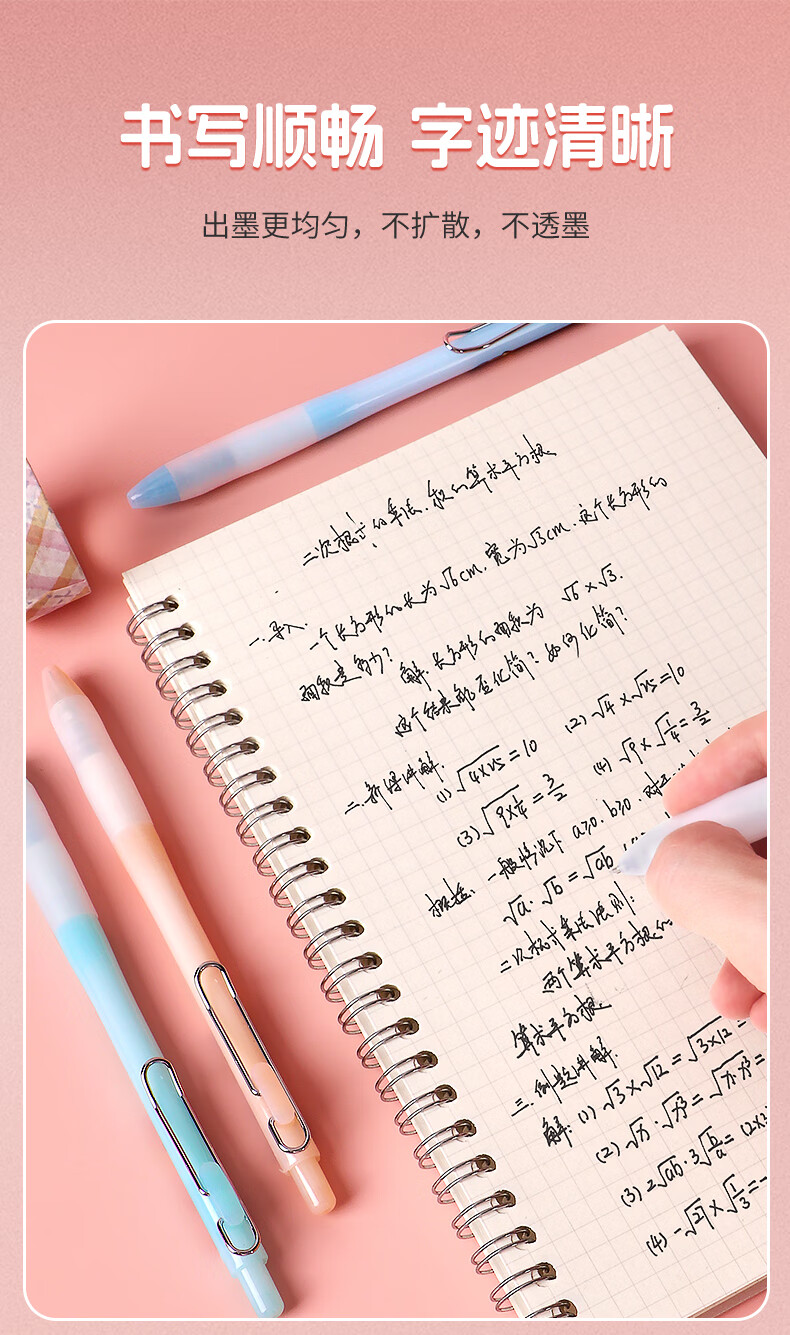 书写顺畅 字迹清晰
出墨更均匀，不扩散，不透墨
二次根式的乘法.积的算术平方根
一.导入. 一个长方形的长为√6cm.宽为√3cm.这个长方形的
面积是多少? 解.长方形的面积为 √6×√3.
这个结果能否化简?如何化简?
二.新课讲解.
(1) √4×25=10 (2) √4×√25=10
(3) √9×1/4=3/2 (4) √9×√1/4=3/2
概括: 一般情况下 a≥0.b≥0.
√a·√b=√ab
二次根式乘法法则:
两个算术平方根的
算术平方根.
三.例题讲解.
解:(1) √3×√12=√3×12=
(2) √x·√x³=√x·x³=
(3) 2√ab·3√b/a=
(4) -√27×√1/3=-